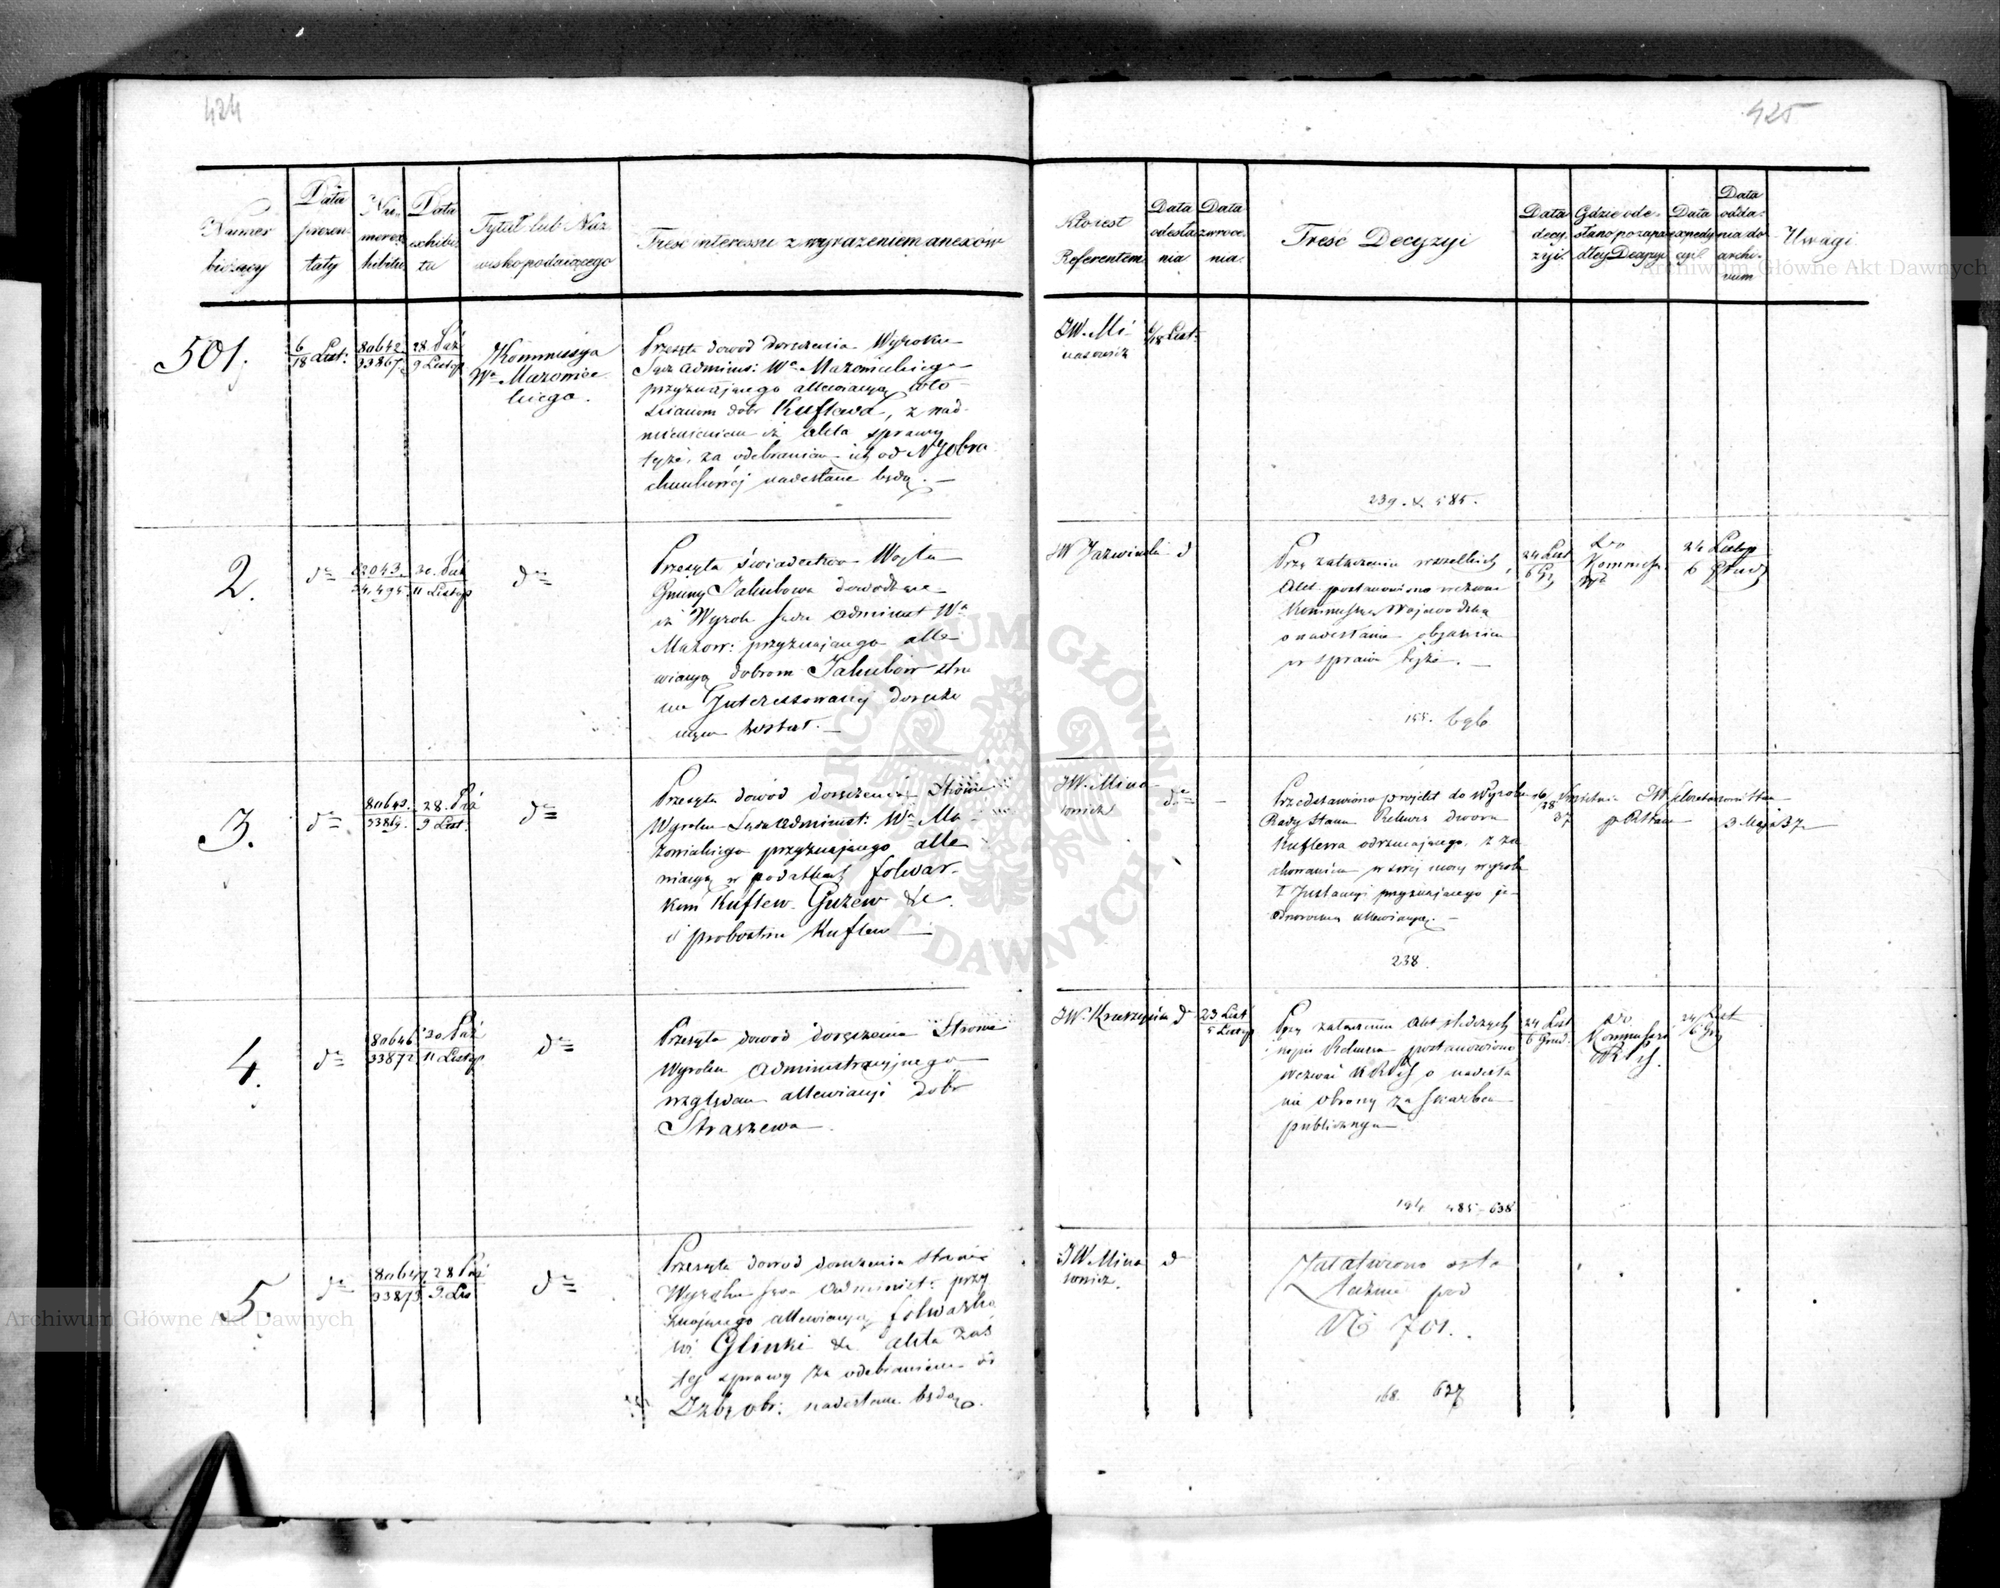 424
Numer bieżący
Data prezentaty
Numer exhibitu
Data exhibitu
Tytuł lub Nazwisko podającego
Treść interessu z wyrażeniem anexów
501.
6/18 List:
80642. 33867.
28. Paź 9 Listop
Kommissya
Wa Mazowiec
kiego.
Przesyła dowod doręczenia Wyroku
Sądu adminis: Wa Mazowieckiego
przyznającego allewiacyą wło-
ścianom dobr Kuflewa, z nad-
mienieniem iż akta sprawy
tyże, za odebraniem ich od Izby obra
chunkowéj nadesłane będą. —
2.
do
82043. 34,495
30. Paź 11 Listop
do
Przesyła świadectwo Wojta
Gminy Jakubowa dowodzące
iż Wyrok Sądu administ Wa
Mazow: przyznającego alle
wiacyą dobrom Jakubów stro
nie Interessowanéj doręczo
nym został. —
3.
do
80643. 33869.
28. Paź 9 List.
do
Przesyła dowód doręczenia Stronie
Wyroku Sądu administ: Wa Ma
zowieckiego przyznającego alle
wiacyą w podatkach folwar-
kom Kuflew. Guzew &c.
i probostwu Kuflew —
4.
do
80646 33872
30 Paź 11 Listop
do
Przesyła dowod doręczenia Stronie
Wyroku administracyjnego
względem allewiacyi dobr
Straszewa
5.
do
80647 33873
28 Paź 9. Lis
do
Przesyła dowod doręczenia stronie
Wyroku Sądu administ: przy
znającego allewiacyą folwarko
wi Glinki &c akta zaś
tej sprawy za odebraniem od
Izby obr: nadesłane będą.
425
Kto jest Referentem
Data odesłania
Data zwrócenia
Treść Decyzyi
Data decyzyi.
Gdzie odesłano po zapadłey Decyzyi
Data expedycyi
Data oddania do archivum
Uwagi
JW. Mi
nasowicz
6/18 List:
239. & 585.
JW Jazwinski
d
Przy załączeniu wszelkich
Akt postanowiono wezwać
Kommissyą Wojewodzką
o nadesłanie objaśnień
w sprawie tyże. —
155. byłe
24 List 6 Gr
Do
Kommissyi
Wd
24 Listop
6 Grud
JW. Mina
sowicz
do
—
Przedstawiono projekt do Wyroku
Rady Stanu Rekurs dworu
Kuflewa odrzucającego, z za
chowaniem w swéj mocy wyroku
I Instancyi przyznającego je-
dnoroczną allewiacyą. —
238.
16/28 Kwietnia 37
3. Maja 37
JW. Kruszyński
do
23 List 5 Listop
Przy załączeniu Akt śledczych
i kopii Rekursu postanowiono
wezwać KRPiS o nadesła
nie obrony za Skarbem
publicznym
194. 485 - 638
24 List 6 Grud.
Do
Kommissyi
RPiS.
24 List
6 Gr
JW Mina
sowicz.
d
Załatwiono osta
tecznie pod
No 701.
168. 627
Archiwum Główne Akt Dawnych
Archiwum Główne Akt Dawnych
ARCHIWUM GŁÓWNE AKT DAWNYCH